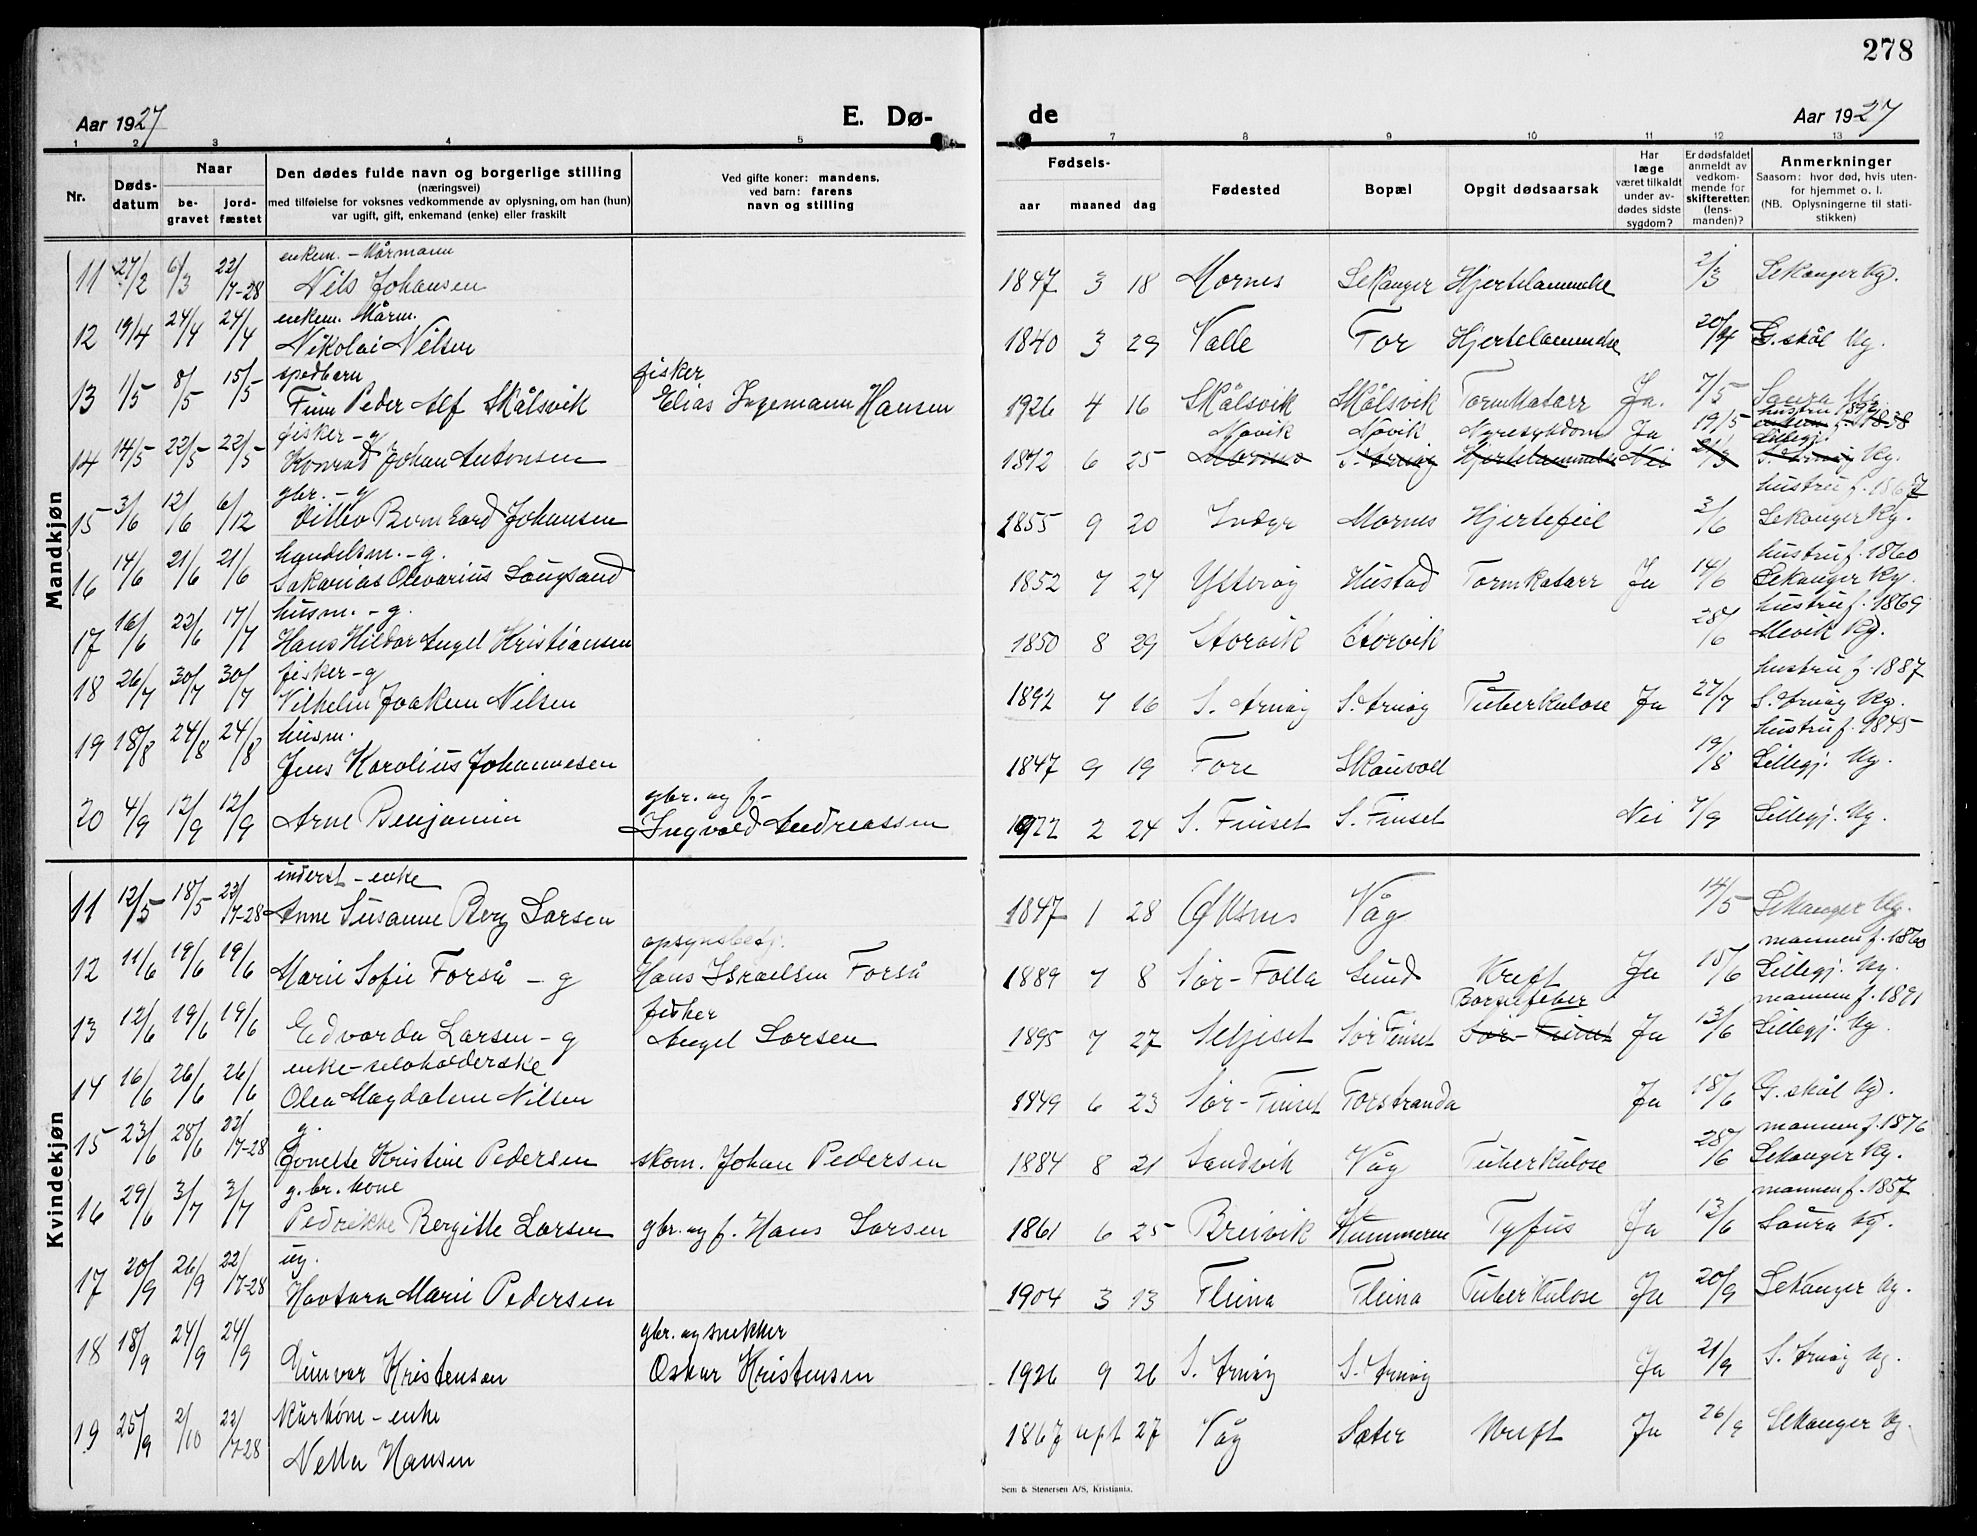 278
Aar 1927
E. Dø-
de
Aar 1927
1 2 3 4 5 7 8 9 10 11 12 13
Nr.
Døds-
datum
Naar
be-
gravet
jord-
fæstet
Den dødes fulde navn og borgerlige stilling
(næringsvei)
med tilføielse for voksnes vedkommende av oplysning, om han (hun)
var ugift, gift, enkemand (enke) eller fraskilt
Ved gifte koner: mandens,
ved barn: farens
navn og stilling
Fødsels-
aar maaned dag
Fødested
Bopæl
Opgit dødsaarsak
Har
læge
været tilkaldt
under av-
dødes sidste
sygdom?
Er dødsfaldet
anmeldt av
vedkom-
mende for
skifteretten
(lens-
manden)?
Anmerkninger
Saasom: hvor død, hvis uten-
for hjemmet o. l.
(NB. Oplysningerne til stati-
stikken)
Mandkjøn
enkem. – Kårmann
11 27/2 6/3 22/7-28 Nils Johansen 1847 3 18 Mornes Sekanger Hjertelammelse 2/3 Sekanger kg.
enkem. Kårm.
12 19/4 24/4 24/4 Nikolai Nilsen 1840 3 29 Valle For Hjertelammelse 20/4 G.skål kg.
spedbarn fisker
13 1/5 8/5 15/5 Finn Peder Alf Skålsvik Elias Ingemann Hansen 1926 4 16 Skålsvik Skålsvik Tarmkatarr Ja. 7/5 Saura kg.
fisker – g Nyresykdom Ja 19/5
14 14/5 22/5 22/5 Konrad Johan Antonsen 1892 6 25 S. Arnøy Hjertelammelse Nei kg.
gbr. – g hustru f. 1867
15 3/6 12/6 6/12 Johansen 1855 9 20 Indyr Mornes Hjertefeil 3/6 Sekanger kg.
handelsm. – g. hustru f. 1860
16 14/6 21/6 21/6 Sakarias Olevarius Langsand 1852 7 27 Ytterøy Hustad Tarmkatarr Ja 14/6 Sekanger kg.
husm. – g. hustru f. 1869
17 16/6 22/6 17/7 Hans Hildor Angel Kristiansen 1850 8 29 Storvik Storvik 28/6 Mevik kg.
fisker – g hustru f. 1887
18 26/7 30/7 30/7 Vilhelm Joakim Nilsen 1892 7 16 S. Arnøy S. Arnøy Tuberkulose Ja 27/7 S. Arnøy kg.
husm. hustru f. 1845
19 18/8 24/8 24/8 Jens Karolius Johannesen 1847 9 19 Fore Skauvoll 19/8 Lillegj. kg.
gbr. og f –
20 4/9 12/9 12/9 Arne Benjamin Ingvald Andreassen 1922 2 24 S. Finset S. Finset Nei 7/9 Lillegj. kg.
Kvindekjøn
inderst – enke
11 12/5 18/5 22/7-28 Anne Susanne Berg Larsen 1847 1 28 Øksnes Våg 14/5 Sekanger kg.
opsynsbetj. mannen f. 1860
12 11/6 19/6 19/6 Marie Sofie Forså – g Hans Israelsen Forså 1889 7 8 Sør-Folla Sund Kreft Ja 15/6 Lillegj. kg.
fisker Barselfeber mannen f. 1891
13 12/6 19/6 19/6 Edvarda Larsen – g Angel Larsen 1895 7 27 Seljeset Sør Finset Sør-Finset Ja 13/6 Lillegj. kg.
enke – selvholderske
14 16/6 26/6 26/6 Olea Magdalene Nilsen 1849 6 23 Sør-Finset Forstranda Ja 18/6 G. skål kg.
g. mannen f. 1876
15 23/6 28/6 22/7-28 Kristine Pedersen skom. Johan Pedersen 1884 8 21 Sandvik Våg Tuberkulose 28/6 Sekanger kg.
g. br. kone mannen f. 1857
16 29/6 3/7 3/7 Pedrikke Bergitte Larsen gbr. og f. Hans Larsen 1861 6 25 Breivik Kummeren Tyfus Ja 13/6 Saura kg.
ug.
17 20/9 26/9 22/7-28 Marie Pedersen 1904 3 13 Fleina Fleina Tuberkulose Ja 20/9 Sekanger kg.
gbr. og snekker
18 18/9 24/9 24/9 Gunvor Kristensen Oskar Kristensen 1926 9 26 S. Arnøy S. Arnøy Ja 21/9 S. Arnøy kg.
Kårkone – enke
19 25/9 2/10 22/7-28 Hansen 1867 27 Våg Sæter Kreft Ja 26/9 Sekanger kg.
Sem & Stenersen A/S, Kristiania.